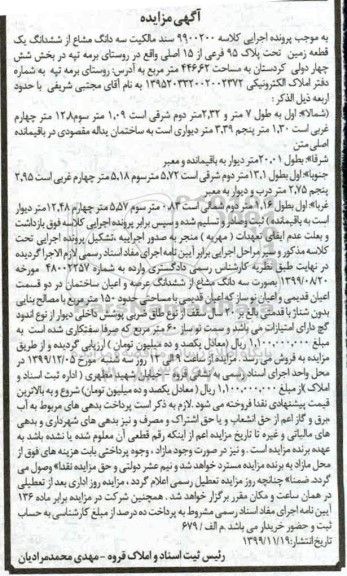 آگهی مزایده
به موجب پرونده اجرایی کلاسه ۹۹۰۰۲۰۰ سند مالکیت سه دانگ مشاع از ششدانگ یک
قطعه زمین تحت پلاک ۹۵ فرعی از ۱۵ اصلی واقع در روستای برمه تپه در بخش شش
چهار دولی کردستان به مساحت ۴۴۶,۶۲ متر مربع به آدرس: روستای برمه تپه به شماره
دفتر املاک الکترونیکی ۱۳۹۵۲۰۳۳۲۰۰۲۰۰۲۳۷۲ به نام آقای مجتبی شریفی با حدود
اربعه ذیل الذکر:
(شمالا): اول به طول ۷ متر و ۲,۳۲متر دوم شرقی است ۱,۰۹ متر سوم۱۲,۸ متر چهارم
غربی است ۱,۳۰ متر پنجم ۳,۳۹ متر دیواری است به ساختمان یداله مقصودی در باقیمانده
اصلی متن
شرقا: بطول ۲۰,۰۱متر دیوار به باقیمانده و معبر
جنوبا: اول بطول ۱۳,۱متر دوم شرقی است ۵,۷۲ مترسوم ۵,۱۸ متر چهارم غربی است ۲,۹۵
پنجم ۲,۷۵ متر درب و دیوار به معبر
غربا: اول بطول ۱,۱۶متر دوم شمالی است ۰,۸۳ متر سوم ۵,۵۷ متر چهارم ۱۲,۴۸متر دیوار
است به باقیمانده ) ثبت و صادر و تسلیم شده و سپس برابر پرونده اجرایی کلاسه فوق بازداشت
و بعلت عدم ایفای تعهدات ( مهریه ) منجر به صدور اجراییه ،تشکیل پرونده اجرایی تحت
کلاسه مذکور و سیر مراحل اجرایی برابر آیین نامه اجرای مفاد اسناد رسمی لازم الاجرا گردیده
در نهایت طبق نظریه کارشناس رسمی دادگستری وارده به شماره ۴۸۰۰۲۲۵۷ مورخه
۱۳۹۹/۰۸/۲۰ بصورت سه دانگ مشاع از ششدانگ عرصه و اعیان ساختمان در دو قسمت
اعیان قدیمی و اعیان نوساز که اعیان قدیمی با مساحتی حدود ۱۵۰ متر مربع با مصالح بنایی
بدون شناژ با قدمتی بالغ بر ۲۰ سال سقف از نوع طاق ضربی پوشش داخلی دیوار از نوع اندود
گچ دارای امتیازات می باشد و سمت نوساز ۶۰ متر مربع که صرفا سفتکاری شده است به
مبلغ ۱,۱۰۰,۰۰۰,۰۰۰ ریال (معادل یکصد و ده میلیون تومان ) ارزیابی گردیده و از طریق
مزایده به فروش می رسد . مزایده از ساعت ۹ الی ۱۲ روز سه شنبه مورخ ۱۳۹۹/۱۲/۰۵ در
محل واحد اجرای اسناد رسمی به نشانی قروه - خیابان شهید مطهری ( اداره ثبت اسناد و
املاک )از مبلغ ۱,۱۰۰,۰۰۰,۰۰۰ ریال ( معادل یکصد و ده میلیون تومان) شروع و به بالاترین
قیمت پیشنهادی نقدا فروخته می شود .لازم به ذکر است پرداخت بدهی های مربوط به آب
برق و گاز اعم از حق انشعاب و یا حق اشتراک و مصرف و نیز بدهی های شهرداری و بدهی
های مالیاتی و غیره تا تاریخ مزایده اعم از اینکه رقم قطعی آن معلوم شده یا نشده باشد به
عهده برنده مزایده است . و نیز در صورت وجود مازاد ، وجوه پرداختی بابت هزینه های فوق از
محل مازاد به برنده مزایده مسترد خواهد شد و نیم عشر دولتی و حق مزایده نقدا وصول می
گردد. ضمنا چنانچه روز مزایده تعطیل رسمی اعلام گردد ، مزایده روز اداری بعد از تعطیلی
در همان ساعت و مکان مقرر برگزار خواهد شد . همچنین شرکت در مزایده برابر ماده ۱۳۶
آیین نامه اجرای مفاد اسناد رسمی مشروط به پرداخت ده درصد از مبلغ کارشناسی به حساب
ثبت و حضور خریدار می باشد .م الف / ۶۷۹
تاریخ انتشار: ۱۳۹۹/۱۱/۱۹
رئیس ثبت اسناد و املاک قروه - مهدی محمدمرادیان